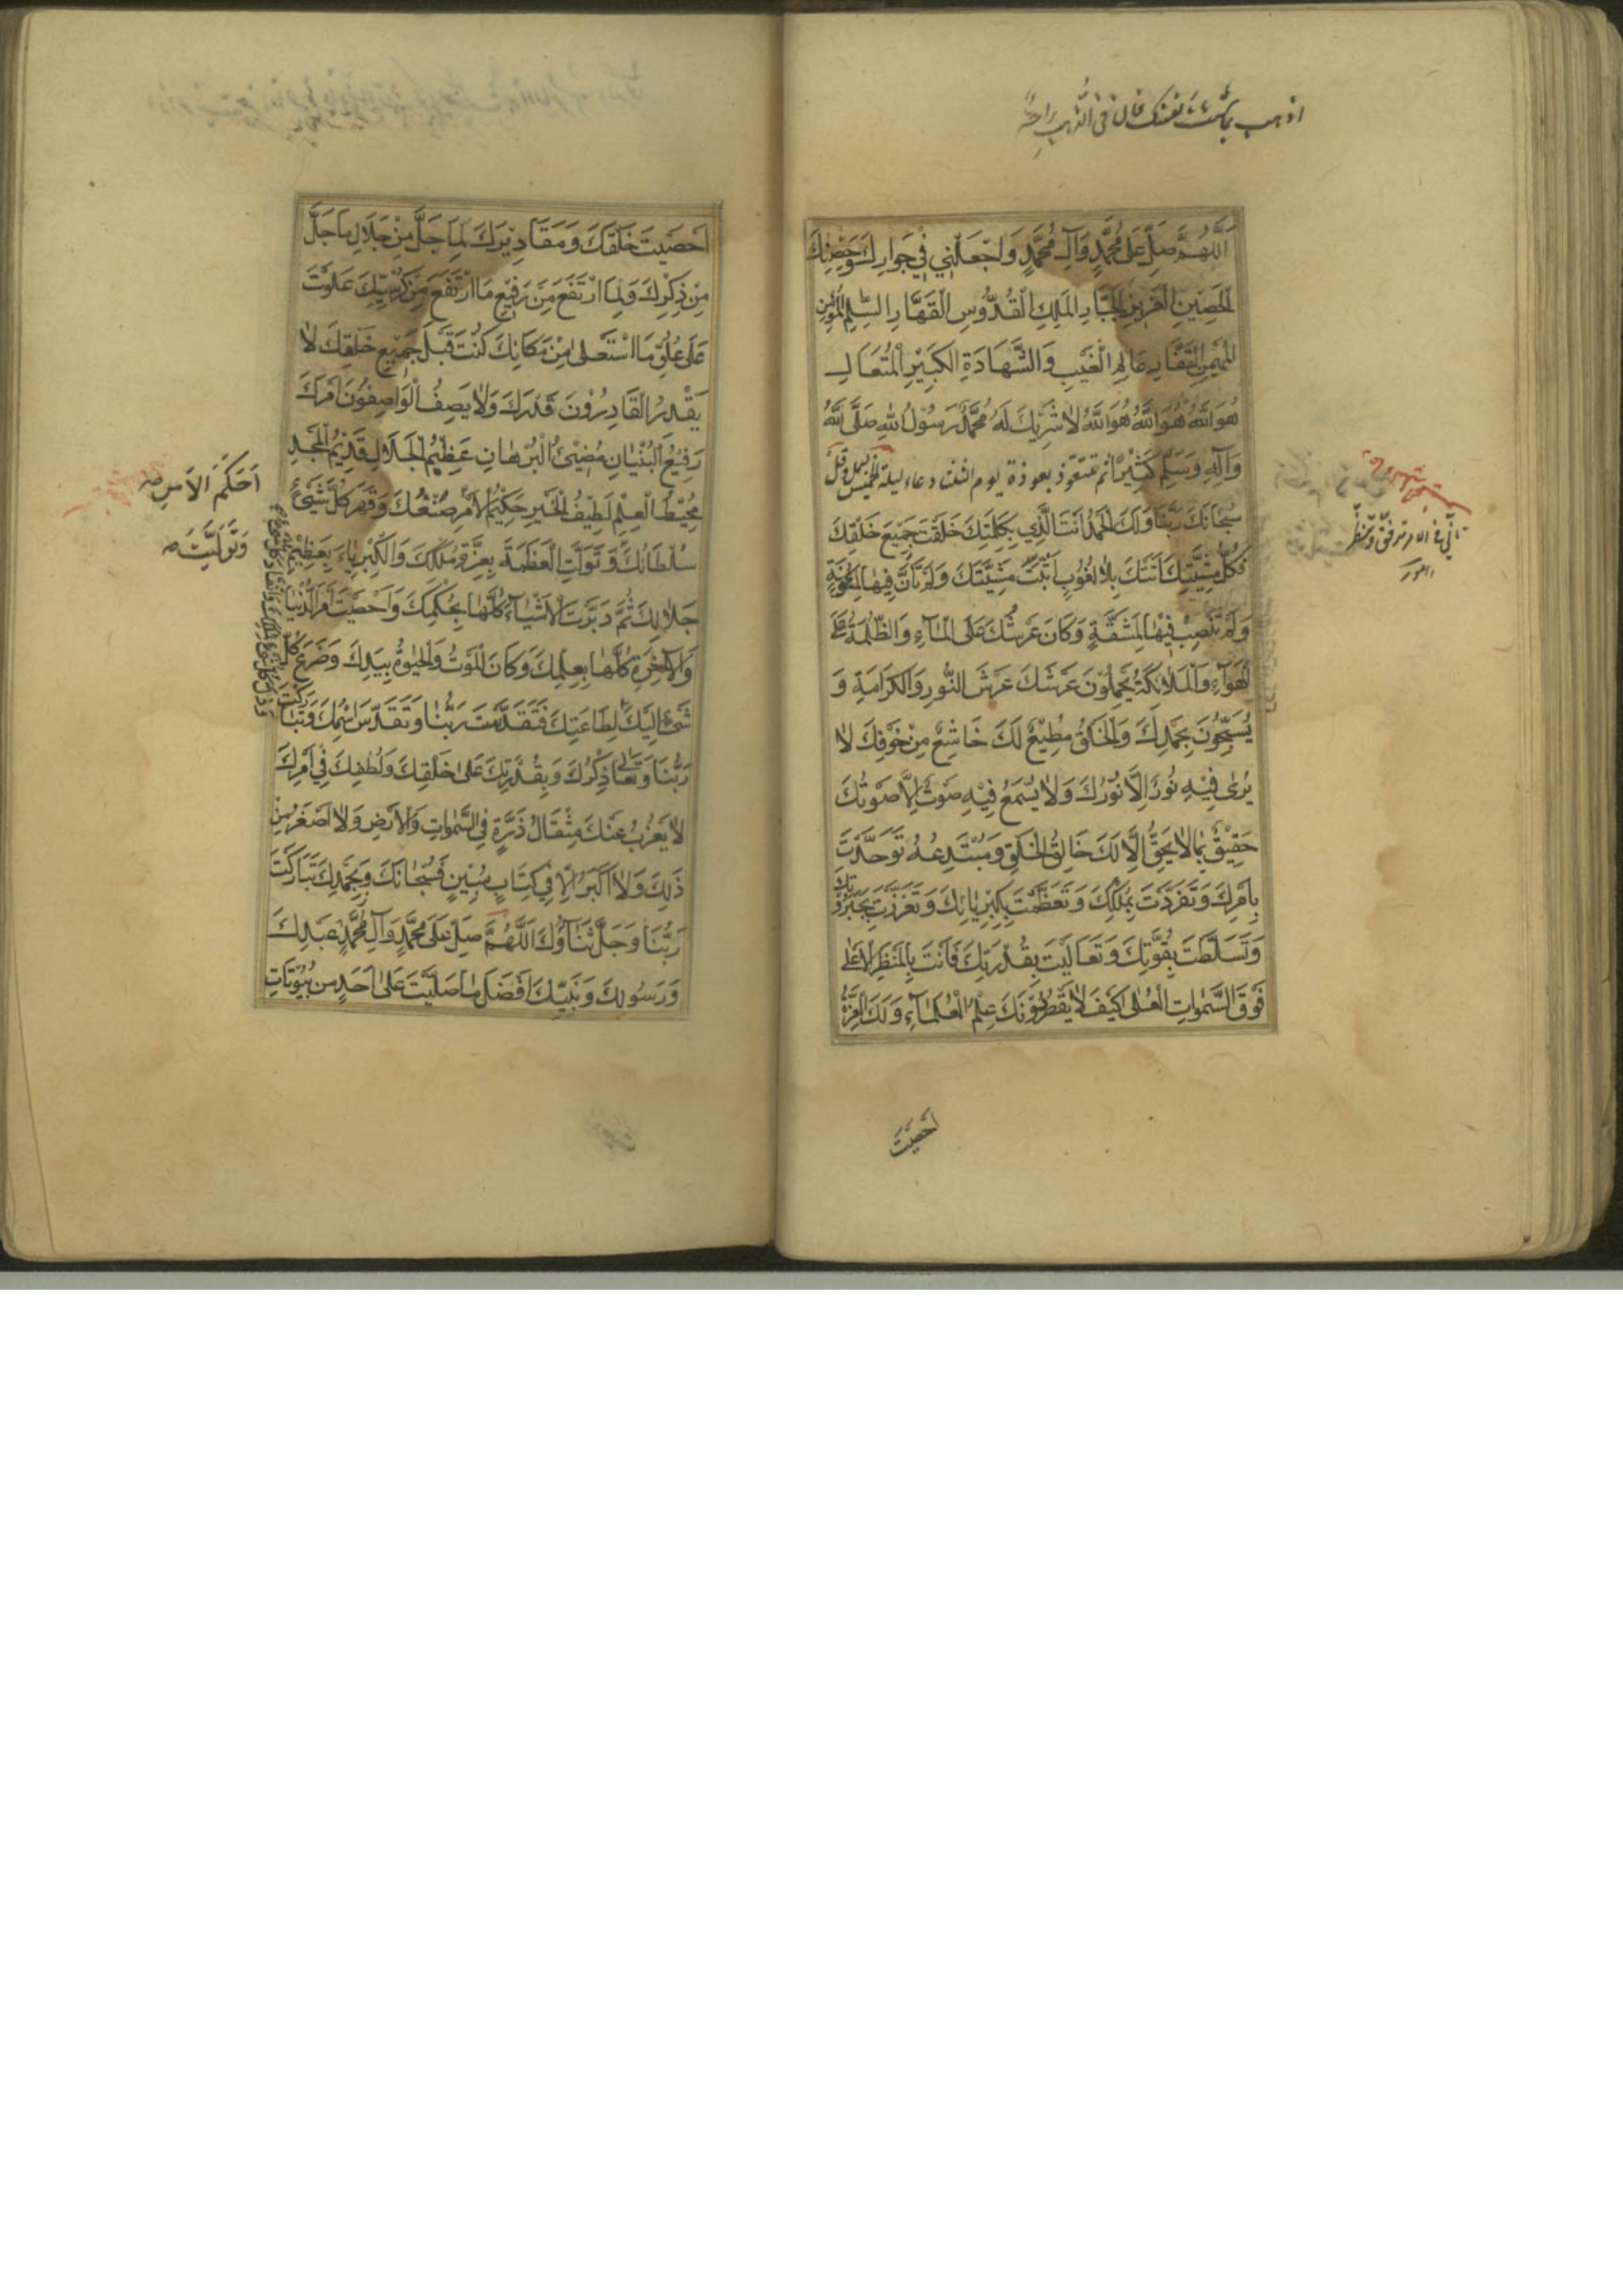 اَللّٰهُمَّ صَلِّ عَلٰى مُحَمَّدٍ وَآلِ مُحَمَّدٍ وَاجْعَلْنِي فِي جَوَارِكَ وَحِصْنِكَ
الْحَصِينِ الْعَزِيزِ الْجَبَّارِ الْمَلِكِ الْقُدُّوسِ الْقَهَّارِ السَّلٰمِ الْمُؤْمِنِ
الْمُهَيْمِنِ الْغَفَّارِ عَالِمِ الْغَيْبِ وَالشَّهَادَةِ الْكَبِيْرِ الْمُتَعَالِ
هُوَ اللّٰهُ هُوَ اللّٰهُ هُوَ اللّٰهُ لَا شَرِيْكَ لَهُ مُحَمَّدٌ رَسُوْلُ اللهِ صَلَّى اللّٰهُ
وَآلِهِ وَسَلَّمَ كَثِيْرًا ثم تتعوذ بعوذة يوم دعاء ليلة الخميس
سُبْحَانَكَ رَبَّنَا وَلَكَ الْحَمْدُ اَنْتَ الَّذِي بِكَلِمَتِكَ خَلَقْتَ جَمِيْعَ خَلْقِكَ
فَكُلُّ مَشِيَّتِكَ اَتَتْكَ بِلَا لُغُوْبٍ اَثْبَتَّ مَشِيَّتَكَ وَلَمْ تَأَنَّ فِيْهَا لِمَؤُنَةٍ
وَلَمْ تَنْصَبْ فِيْهَا لِمَشَقَّةٍ وَكَانَ عَرْشُكَ عَلَى الْمَآءِ وَالظُّلْمَةُ عَلَى
الْهَوَآءِ وَالْمَلَائِكَةُ يَحْمِلُوْنَ عَرْشَكَ عَرْشَ النُّوْرِ وَالْكَرَامَةِ وَ
يُسَبِّحُوْنَ بِحَمْدِكَ وَالْخَلْقُ مُطِيْعٌ لَكَ خَاشِعٌ مِنْ خَوْفِكَ لَا
يُرٰى فِيْهِ نُوْرٌ اِلَّا نُوْرُكَ وَلَا يُسْمَعُ فِيْهِ صَوْتٌ اِلَّا صَوْتُكَ
حَقِيْقٌ بِمَا لَا يَحِقُّ اِلَّا لَكَ خَالِقُ الْخَلْقِ وَمُبْتَدِعُهُ تَوَحَّدْتَ
بِاَمْرِكَ وَتَفَرَّدْتَ بِمُلْكِكَ وَتَعَظَّمْتَ بِكِبْرِيَائِكَ وَتَعَزَّزْتَ بِجَبَرُوْتِكَ
وَتَسَلَّطْتَ بِقُوَّتِكَ وَتَعَالَيْتَ بِقُدْرَتِكَ فَاَنْتَ بِالْمَنْظَرِ الْاَعْلٰى
فَوْقَ السَّمٰوَاتِ الْعُلٰى كَيْفَ لَا يَقْصُرُ دُوْنَكَ عِلْمُ الْعُلَمَآءِ وَلَكَ الْعِزَّةُ
اَحْصَيْتَ
اَحْصَيْتَ خَلْقَكَ وَمَقَادِيْرَكَ لِمَا جَلَّ مِنْ جَلَالِ مَا جَلَّ
مِنْ ذِكْرِكَ وَلِمَا ارْتَفَعَ مِنْ رَفِيْعِ مَا ارْتَفَعَ مِنْ كُرْسِيِّكَ عَلَوْتَ
عَلٰى عُلُوِّ مَا اسْتَعْلٰى مِنْ مَكَانِكَ كُنْتَ قَبْلَ جَمِيْعِ خَلْقِكَ لَا
يَقْدِرُ الْقَادِرُوْنَ قَدْرَكَ وَلَا يَصِفُ الْوَاصِفُوْنَ اَمْرَكَ
رَفِيْعُ الْبُنْيَانِ مُضِيْئُ الْبُرْهَانِ عَظِيْمُ الْجَلَالِ قَدِيْمُ الْمَجْدِ
مُحِيْطُ الْعِلْمِ لَطِيْفُ الْخَيْرِ حَكِيْمُ الْاَمْرِ صُنْعُكَ وَقَهَرَ كُلَّ شَيْئٍ
سُلْطَانُكَ وَتَوَلَّتِ الْعَظَمَةَ بِعِزَّةِ مُلْكِكَ وَالْكِبْرِيَاءَ بِعَظِيْمِ
جَلَالِكَ ثُمَّ دَبَّرْتَ الْاَشْيَاءَ كُلَّهَا بِحُكْمِكَ وَاَحْصَيْتَ اَمْرَ الدُّنْيَا
وَالْآخِرَةِ كُلَّهَا بِعِلْمِكَ وَكَانَ الْمَوْتُ وَالْحَيٰوةُ بِيَدِكَ وَضَرَعَ كُلُّ
شَيْءٍ اِلَيْكَ لِطَاعَتِكَ فَتَقَدَّسْتَ رَبَّنَا وَتَقَدَّسَ اسْمُكَ وَتَبَارَكْتَ
رَبَّنَا وَتَعَالٰى ذِكْرُكَ وَبِقُدْرَتِكَ عَلٰى خَلْقِكَ وَلُطْفِكَ فِي اَمْرِكَ
لَا يَعْزُبُ عَنْكَ مِثْقَالُ ذَرَّةٍ فِي السَّمٰوَاتِ وَالْاَرْضِ وَلَا اَصْغَرُ مِنْ
ذٰلِكَ وَلَا اَكْبَرُ اِلَّا فِي كِتَابٍ مُبِيْنٍ فَسُبْحَانَكَ وَبِحَمْدِكَ تَبَارَكْتَ
رَبَّنَا وَجَلَّ ثَنَآؤُكَ اَللّٰهُمَّ صَلِّ عَلٰى مُحَمَّدٍ وَآلِ مُحَمَّدٍ عَبْدِكَ
وَرَسُوْلِكَ وَنَبِيِّكَ اَفْضَلَ مَا صَلَّيْتَ عَلٰى اَحَدٍ مِنْ بُيُوْتَاتِ
اَحْكَمَ الْاَمْرِ
وَتَوَلَّيْتَ